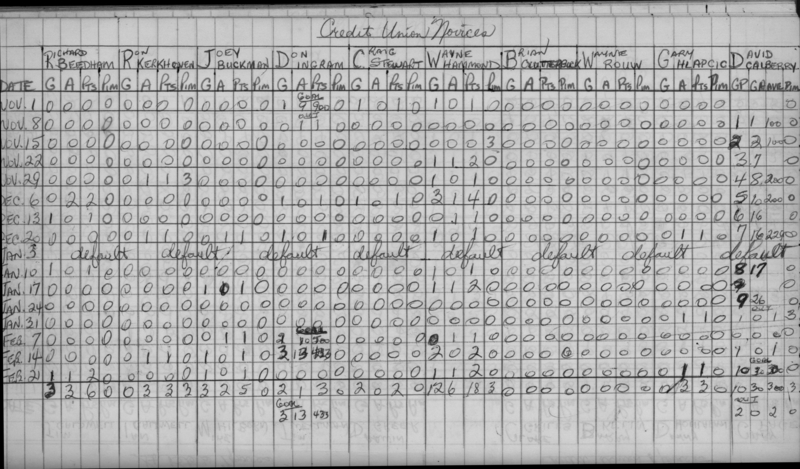 Credit Union Novices
RICHARD BEEDHAM RON KERKHOVEN JOEY BUCKMAN DON INGRAM CRAIG STEWART WAYNE HAMMOND BRIAN WAYNE ROUW GARY HLAPCIC DAVID CALBERRY
DATE G A Pts Pim G A Pts Pim G A Pts Pim G A Pts Pim G A Pts Pim G A Pts Pim G A Pts Pim G A Pts Pim G A Pts Pim GP G AVE Pim
NOV. 1 0 0 0 0 0 0 0 0 0 0 0 0 1 GOAL 9 900 0 1 0 1 0 1 0 1 0 0 0 0 0 0 0 0 0 0 0 0 0
NOV. 8 0 0 0 0 0 0 0 0 0 0 0 0 OUT 0 1 1 0 0 0 0 0 0 0 0 0 0 0 0 0 0 0 0 0 0 0 0 0 1 1 100 0
NOV. 15 0 0 0 0 0 0 0 0 0 0 0 0 0 0 0 0 0 0 0 0 0 0 0 3 0 0 0 0 0 0 0 0 0 0 0 0 2 2 100 0
NOV. 22 0 0 0 0 0 0 0 0 0 0 0 0 0 0 0 0 0 0 0 0 1 1 2 0 0 0 0 0 0 0 0 0 0 0 0 0 3 7 0
NOV. 29 0 0 0 0 0 1 1 3 0 0 0 0 0 0 0 0 0 0 0 0 1 0 1 0 0 0 0 0 0 0 0 0 0 0 0 0 4 8 200 0
DEC. 6 0 2 2 0 0 0 0 0 0 0 0 0 1 0 1 0 1 0 1 0 3 1 4 0 0 0 0 0 0 0 0 0 0 0 0 0 5 10 200 0
DEC. 13 1 0 1 0 0 0 0 0 0 0 0 0 0 0 0 0 0 0 0 0 0 1 1 0 0 0 0 0 0 0 0 0 0 0 0 0 6 16 0
DEC. 20 0 0 0 0 0 1 1 0 0 1 1 0 1 0 1 0 0 0 0 0 1 0 1 0 0 0 0 0 0 0 0 0 0 1 1 0 7 16 0
JAN. 3 default default default default default default default default default default
JAN. 10 1 0 1 0 0 0 0 0 0 0 0 0 0 0 0 0 0 0 0 0 1 0 1 0 0 0 0 0 0 0 0 0 0 0 0 0 8 17 0
JAN. 17 0 0 0 0 0 0 0 0 1 0 1 0 0 0 0 0 0 0 0 0 1 1 2 0 0 0 0 0 0 0 0 0 0 0 0 0 0
JAN. 24 0 0 0 0 0 0 0 0 0 0 0 0 0 0 0 0 0 0 0 0 0 0 0 0 0 0 0 0 0 0 0 0 0 0 0 0 9 26 0
JAN. 31 0 0 0 0 0 0 0 0 0 0 0 0 0 0 0 0 0 0 0 0 0 0 0 0 0 0 0 0 0 0 0 0 0 1 1 0 OUT 1 0 1 3
FEB. 7 0 0 0 0 0 0 0 0 0 1 1 0 GOAL 2 10 500 0 0 0 0 0 0 1 1 0 0 0 0 0 0 0 0 0 0 0 0 0 0 0 0 0
FEB. 14 0 0 0 0 0 1 1 0 1 0 1 0 3 13 433 0 0 0 0 0 2 0 2 0 0 0 0 0 0 0 0 0 0 0 0 0 1 0 1 0
FEB. 21 1 1 2 0 0 0 0 0 1 0 1 0 0 0 0 0 0 0 0 0 1 1 2 0 0 0 0 0 0 0 0 0 0 1 1 0 GOAL 10 30 300 0
3 3 6 0 0 3 3 3 3 2 5 0 2 1 3 0 2 0 2 0 12 6 18 3 0 0 0 0 0 0 0 0 0 3 3 0 10 30 300 3
GOAL OUT
3 13 433 2 0 2 0